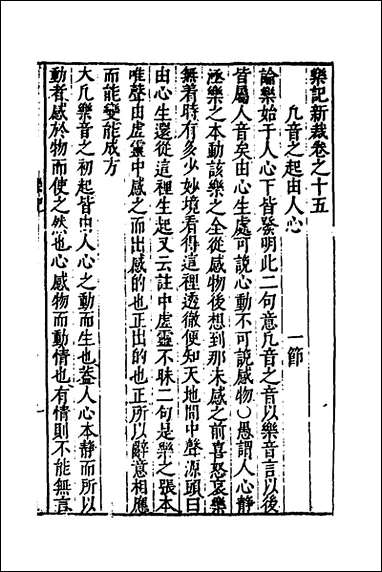 樂記新裁卷之十五
凡音之起由人心 一節
論樂始于人心下皆發明此二句意凡音之音以樂音言以後
皆屬人音矣由心生處可說心動不可說感物○愚謂人心靜
極樂之本動該樂之全從感物後想到那未感之前喜怒哀樂
無着時有多少妙境看得這裡透徹便知天地間中聲源頭曰
由心生還從這裡生起又云註中虛靈不昧二句是樂之張本
唯聲由虛靈中感之而出感的也正出的也正所以辭意相應
而能變能成方
大凡樂音之初起皆由人心之動而生也蓋人心本靜而所以
動者感於物而使之然也心感物而動情也有情則不能無言